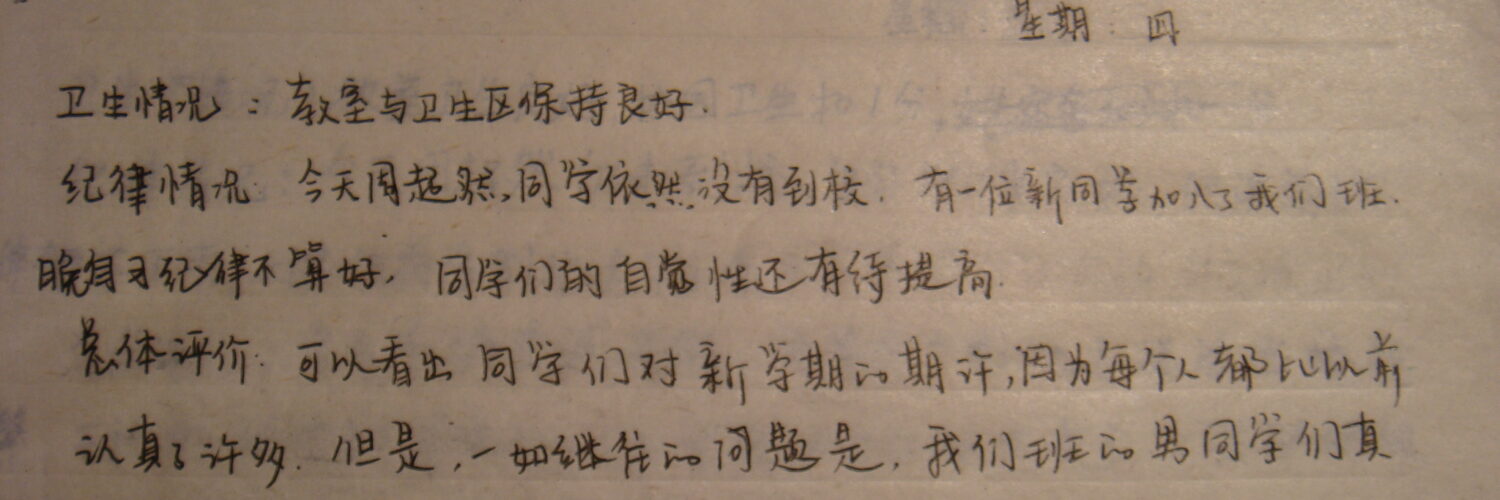 星期：四
卫生情况：教室与卫生区保持良好.
纪律情况：今天周超然,同学依然没有到校. 有一位新同学加入了我们班.
晚自习纪律不算好, 同学们的自觉性还有待提高.
总体评价：可以看出同学们对新学期的期许,因为每个人都比以前
认真了许多. 但是,一如继往的问题是,我们班的男同学们真